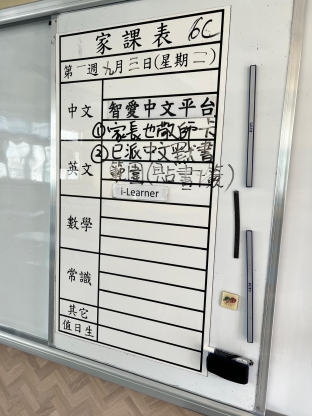 家課表 6C
第一週九月三日(星期二)
中文
智愛中文平台
①家長也敬師卡
②已派中文默書
範圍(貼書簽)
英文
i-Learner
數學
常識
其它
值日生